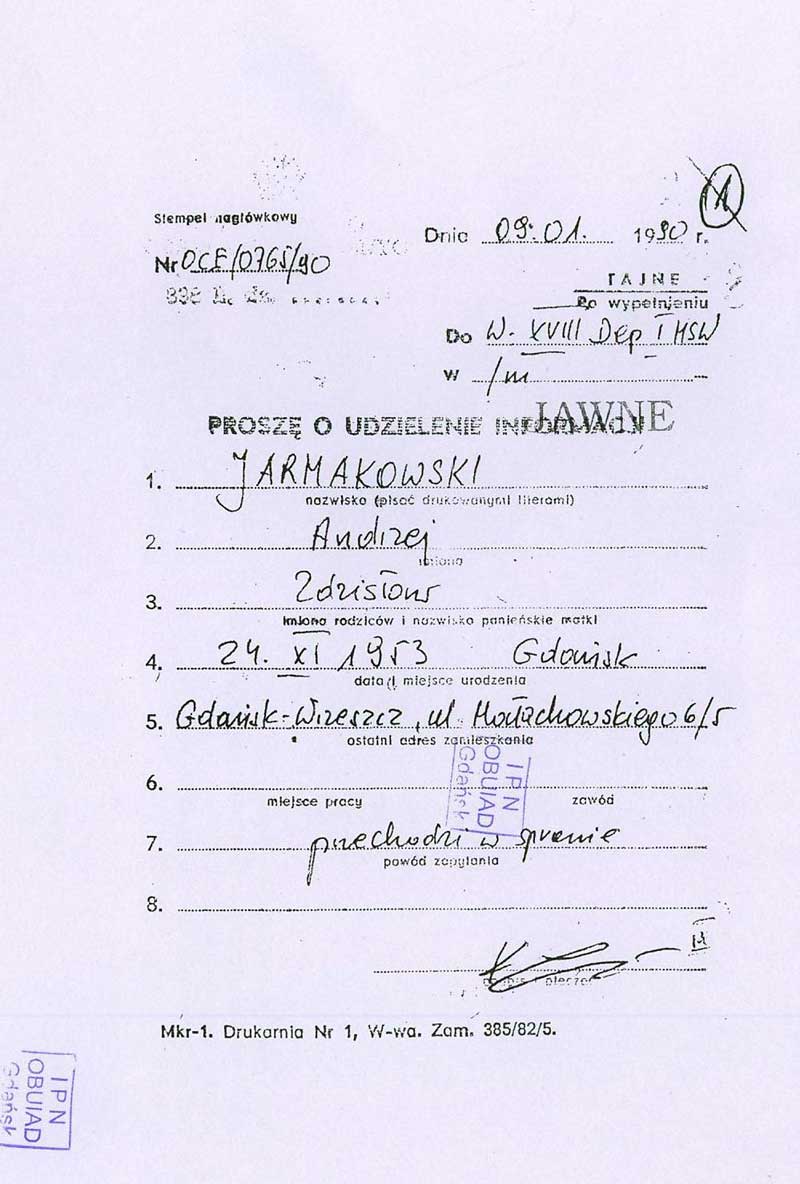 1
Stempel nagłówkowy
Dnia 09.01. 1990 r.
Nr OCE/0765/90
TAJNE
Po wypełnieniu
Do W. XVIII Dep I MSW
w /m
PROSZĘ O UDZIELENIE INFORMACJI
JAWNE
1. JARMAKOWSKI
nazwisko (pisać drukowanymi literami)
2. Andrzej
imiona
3. Zdzisław
imiona rodziców i nazwisko panieńskie matki
4. 24. XI 1953 Gdańsk
data i miejsce urodzenia
5. Gdańsk-Wrzeszcz, ul. Małachowskiego 6/5
ostatni adres zamieszkania
6.
miejsce pracy zawód
IPN
OBUIAD
Gdańsk
7. przechodzi w sprawie
powód zapytania
8.
podpis i pieczęć
Mkr-1. Drukarnia Nr 1, W-wa. Zam. 385/82/5.
IPN
OBUIAD
Gdańsk